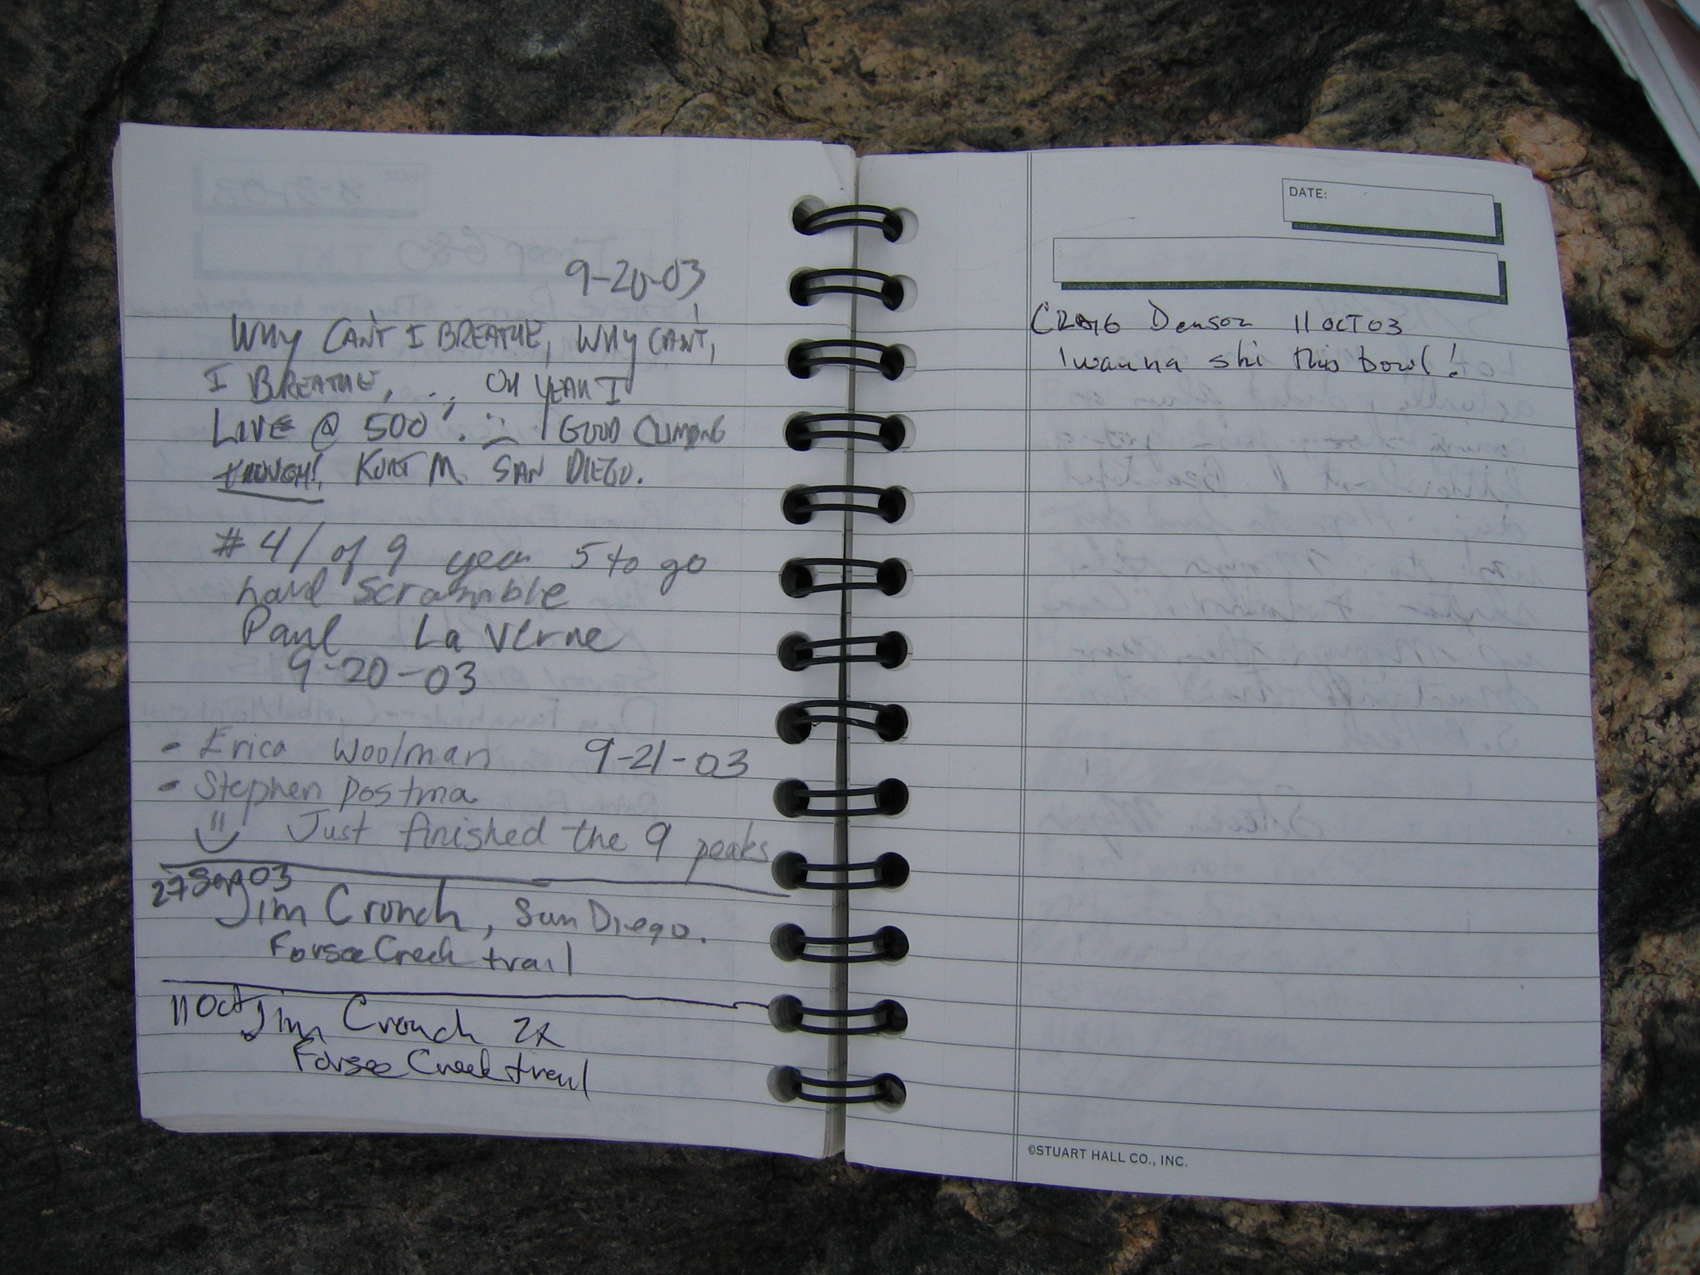 9-20-03
WHY CAN'T I BREATHE, WHY CAN'T,
I BREATHE, ... OH YEAH I
LIVE @ 500'. GOOD CLIMBING
THOUGH! KURT M. SAN DIEGO.
#4/of 9 year 5 to go
hard scramble
Paul La Verne
9-20-03
- Erica Woolman 9-21-03
- Stephen Postma
Just finished the 9 peaks
27 Sep 03
Jim Crouch, San Diego.
Forsee Creek trail
11 Oct Jim Crouch 2x
Forsee Creek trail
DATE:
CRAIG Denson 11 OCT 03
I wanna ski this bowl!
©STUART HALL CO., INC.